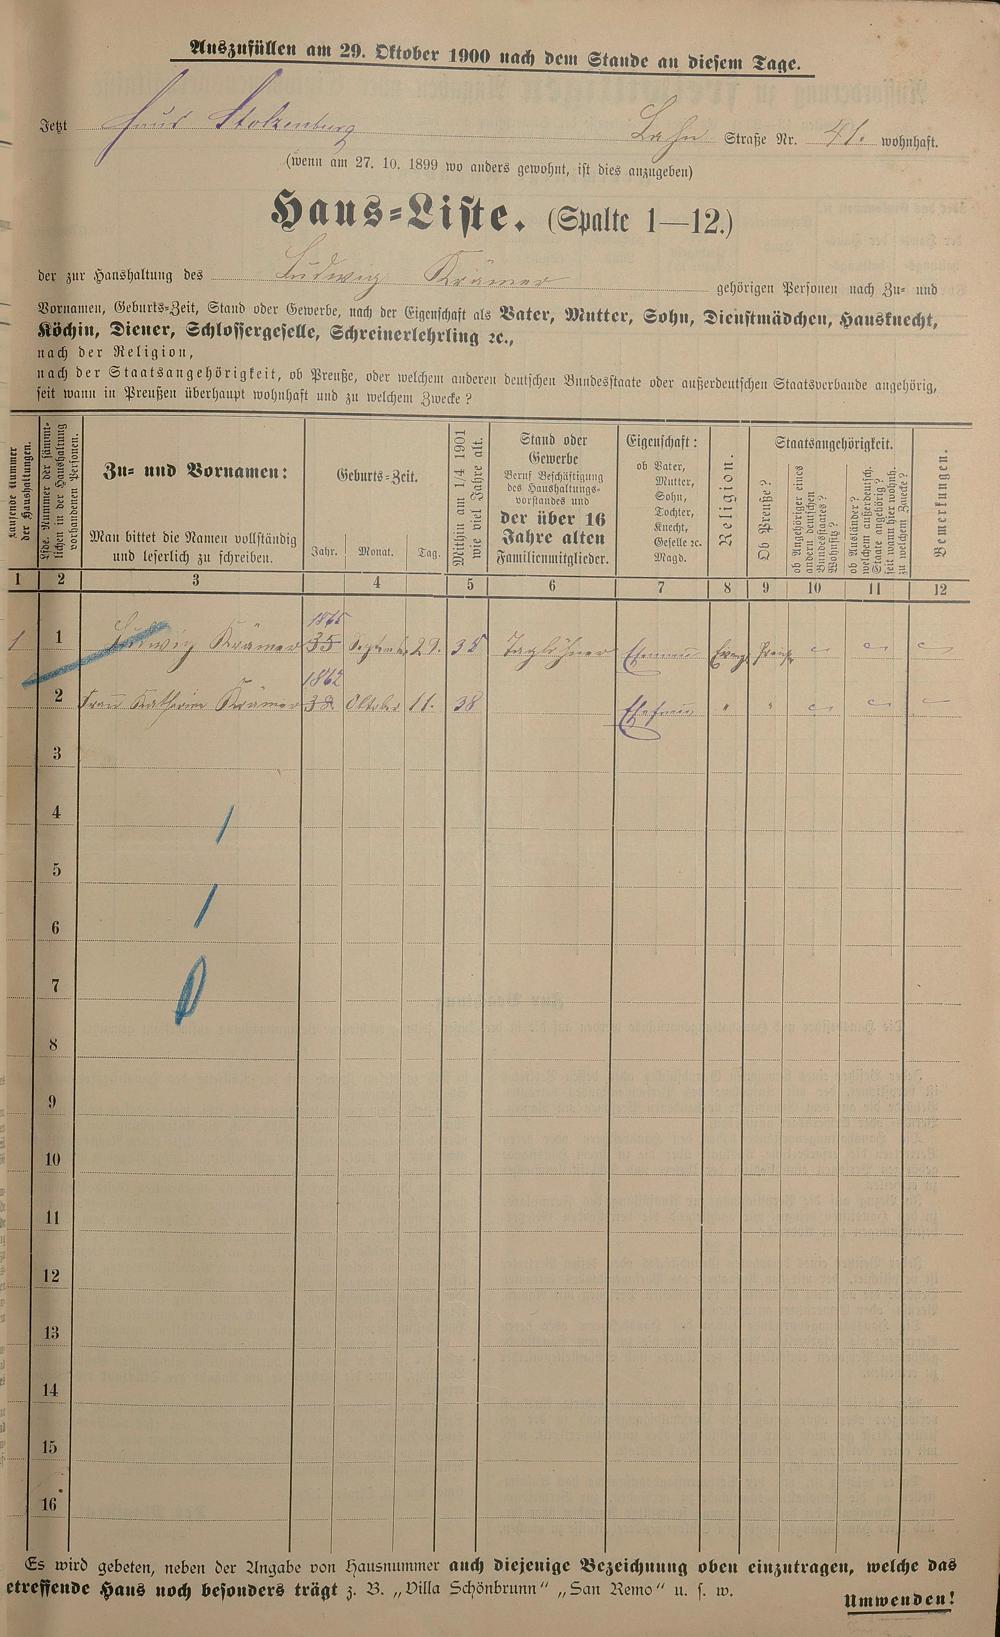 Auszufüllen am 29. Oktober 1900 nach dem Stande an diesem Tage.
Jetzt Haus Stolzenburg Lahn Straße Nr. 41. wohnhaft.
(wenn am 27. 10. 1899 wo anders gewohnt, ist dies anzugeben)
Haus-Liste. (Spalte 1—12.)
der zur Haushaltung des Ludwig Krämer gehörigen Personen nach Zu- und
Vornamen, Geburts-Zeit, Stand oder Gewerbe, nach der Eigenschaft als Vater, Mutter, Sohn, Dienstmädchen, Hausknecht,
Köchin, Diener, Schlossergeselle, Schreinerlehrling ꝛc.,
nach der Religion,
nach der Staatsangehörigkeit, ob Preuße, oder welchem anderen deutschen Bundesstaate oder außerdeutschen Staatsverbande angehörig,
seit wann in Preußen überhaupt wohnhaft und zu welchem Zwecke?
Laufende Nummer
der Haushaltungen.
Lfde. Nummer der sämmt-
lichen in der Haushaltung
vorhandenen Personen.
Zu- und Vornamen:
Man bittet die Namen vollständig
und leserlich zu schreiben.
Geburts-Zeit.
Jahr. Monat. Tag.
Mithin am 1/4 1901
wie viel Jahre alt.
Stand oder
Gewerbe
Beruf Beschäftigung
des Haushaltungs-
vorstandes und
der über 16
Jahre alten
Familienmitglieder.
Eigenschaft:
ob Vater,
Mutter,
Sohn,
Tochter,
Knecht,
Geselle ꝛc.
Magd.
Religion.
Staatsangehörigkeit.
Ob Preuße?
ob Angehöriger eines
andern deutschen
Bundesstaates?
Wohnsitz?
ob Ausländer?
welchem außerdeutsch.
Staate angehörig?
seit wann hier wohnh.
zu welchem Zwecke?
Bemerkungen.
1 2 3 4 5 6 7 8 9 10 11 12
1865
1 1 Ludwig Krämer 35 September 29. 35 Taglöhner Ehemann Evang. Preuße
1862
2 Frau Katharina Krämer 38 Oktober 11. 38 Ehefrau " "
3
4
5
6
7
8
9
10
11
12
13
14
15
16
Es wird gebeten, neben der Angabe von Hausnummer auch diejenige Bezeichnung oben einzutragen, welche das
etreffende Haus noch besonders trägt z. B. „Villa Schönbrunn“ „San Remo“ u. s. w.
Umwenden!